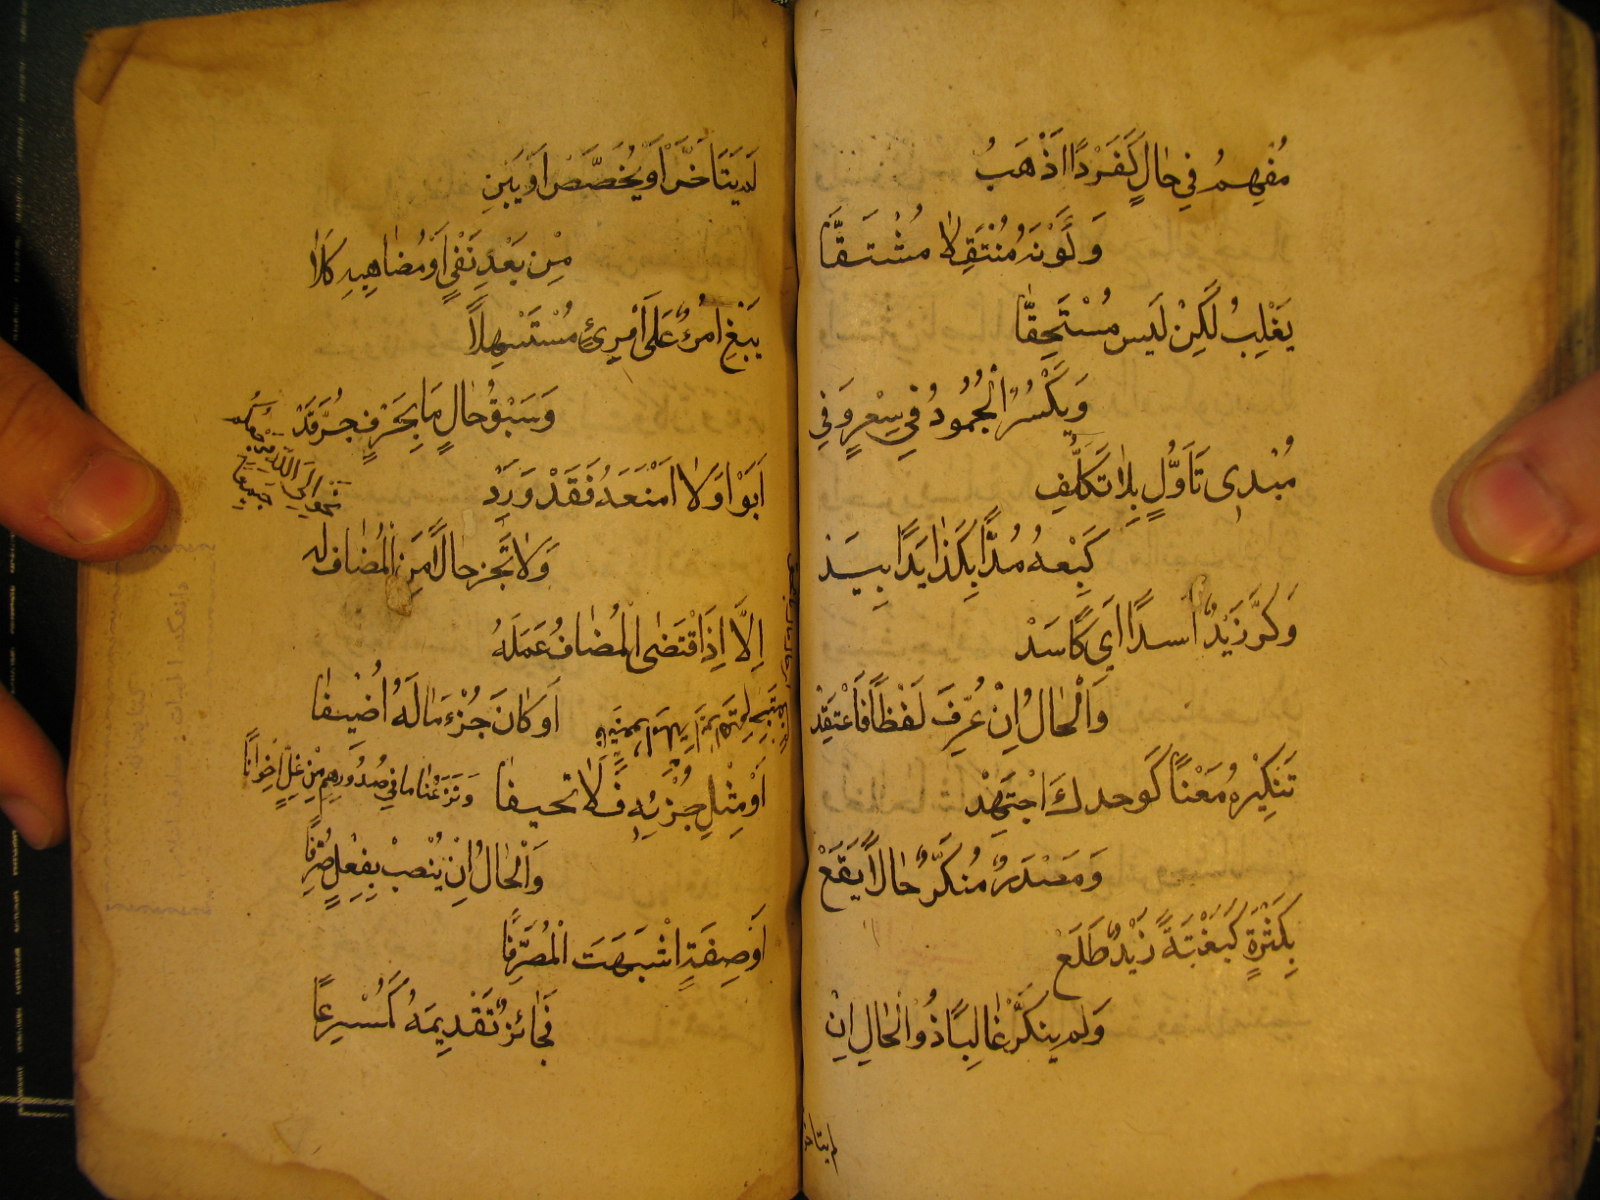 مُفْهِمُ فِي حَالٍ كَفَرْدًا اَذْهَبُ
وَكَوْنُهُ مُنْتَقِلًا مُشْتَقًّا
يَغْلِبُ لٰكِنْ لَيْسَ مُسْتَحِقًّا
وَيَكْسُرُ الْجُمُودُ فِي سِعْرٍ وَفِي
مُبْدِى تَاَوُّلٍ بِلَا تَكَلُّفِ
كَبِعْهُ مُدًّا بِكَذَا يَدًا بِيَدْ
وَكَرَّ زَيْدٌ اَسَدًا اَيْ كَاَسَدْ
وَالْحَالُ اِنْ عُرِّفَ لَفْظًا فَاعْتَقِدْ
تَنْكِيْرَهُ مَعْنًا كَوَحْدَكَ اجْتَهِدْ
وَمَصْدَرٌ مُنَكَّرٌ حَالًا يَقَعْ
بِكَثْرَةٍ كَبَغْتَةً زَيْدٌ طَلَعْ
وَلَمْ يُنَكَّرْ غَالِبًا ذُو الْحَالِ اِنْ
لم يتاخر
لَمْ يَتَاَخَّرْ اَوْ يُخَصَّصْ اَوْ يَبِنِ
مِنْ بَعْدِ نَفْيٍ اَوْ مُضَاهِيهِ كَلَا
يَبْغِ امْرُؤٌ عَلَى امْرِئٍ مُسْتَسْهِلًا
وَسَبْقُ حَالٍ مَا بِحَرْفٍ جُرَّ قَدْ
اَبَوْا وَلَا اَمْنَعُهُ فَقَدْ وَرَدْ
نحو الى الله مرجعكم جميعا
وَلَا تُجِزْ حَالًا مِنَ الْمُضَافِ لَهْ
اِلَّا اِذَا اقْتَضَى الْمُضَافُ عَمَلَهُ
اَوْ كَانَ جُزْءَ مَا لَهُ اُضِيفَا
اَوْ مِثْلَ جُزْئِهِ فَلَا تَحِيفَا
وَنَزَعْنَا مَا فِي صُدُورِهِمْ مِنْ غِلٍّ اِخْوَانًا
وَالْحَالُ اِنْ يُنْصَبْ بِفِعْلٍ صُرِّفَا
اَوْ صِفَةٍ اَشْبَهَتِ الْمُصَرَّفَا
فَجَائِزٌ تَقْدِيمُهُ كَمُسْرِعًا